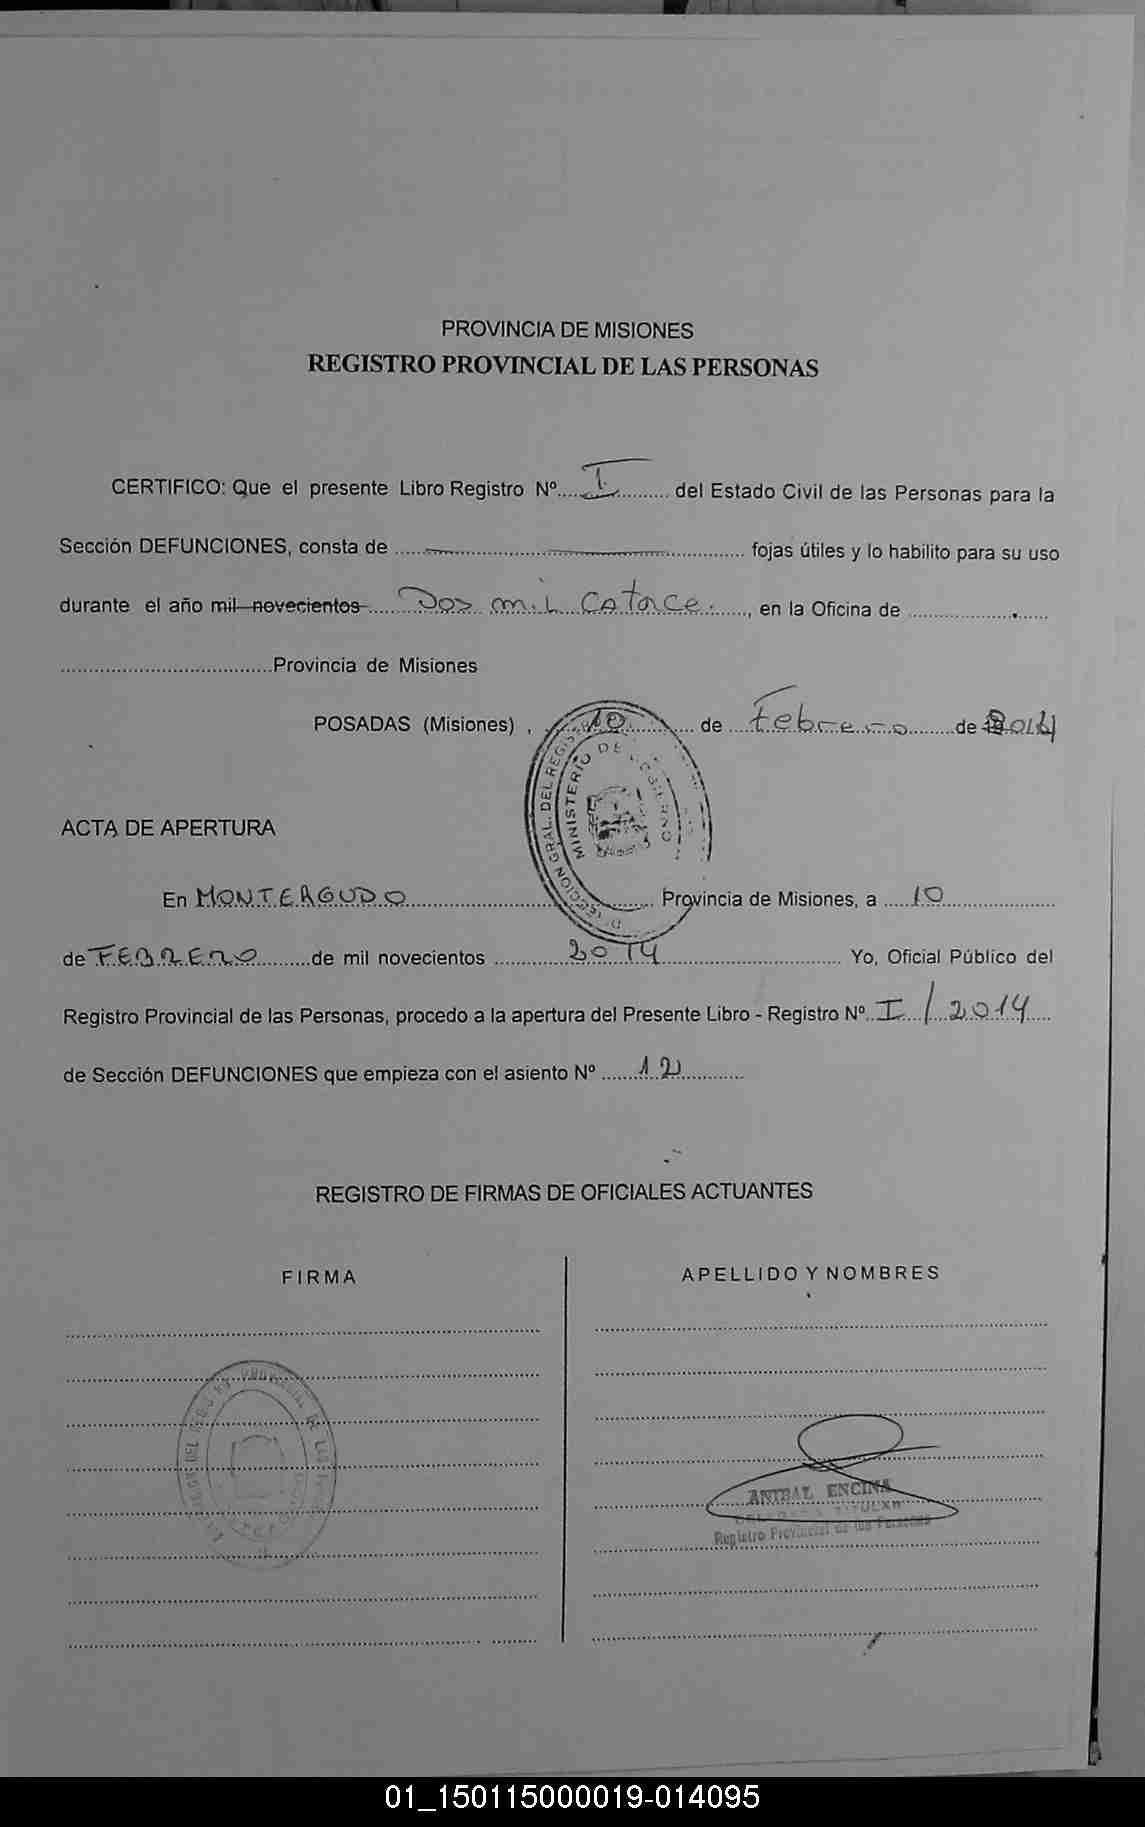 PROVINCIA DE MISIONES
REGISTRO PROVINCIAL DE LAS PERSONAS
CERTIFICO: Que el presente Libro Registro Nº I del Estado Civil de las Personas para la
Sección DEFUNCIONES, consta de fojas útiles y lo habilito para su uso
durante el año mil novecientos Dos mil catorce., en la Oficina de
Provincia de Misiones
POSADAS (Misiones), 10 de Febrero de 2014
DIRECCION GRAL. DEL REGISTRO
MINISTERIO DE GOBIERNO
ACTA DE APERTURA
En MONTEAGUDO Provincia de Misiones, a 10
de FEBRERO de mil novecientos 2014 Yo, Oficial Público del
Registro Provincial de las Personas, procedo a la apertura del Presente Libro - Registro Nº I / 2014
de Sección DEFUNCIONES que empieza con el asiento Nº 12
REGISTRO DE FIRMAS DE OFICIALES ACTUANTES
FIRMA
APELLIDO Y NOMBRES
PROVINCIAL DE LAS
ANIBAL ENCINA
TITULAR
Registro Provincial de las Personas
01_150115000019-014095